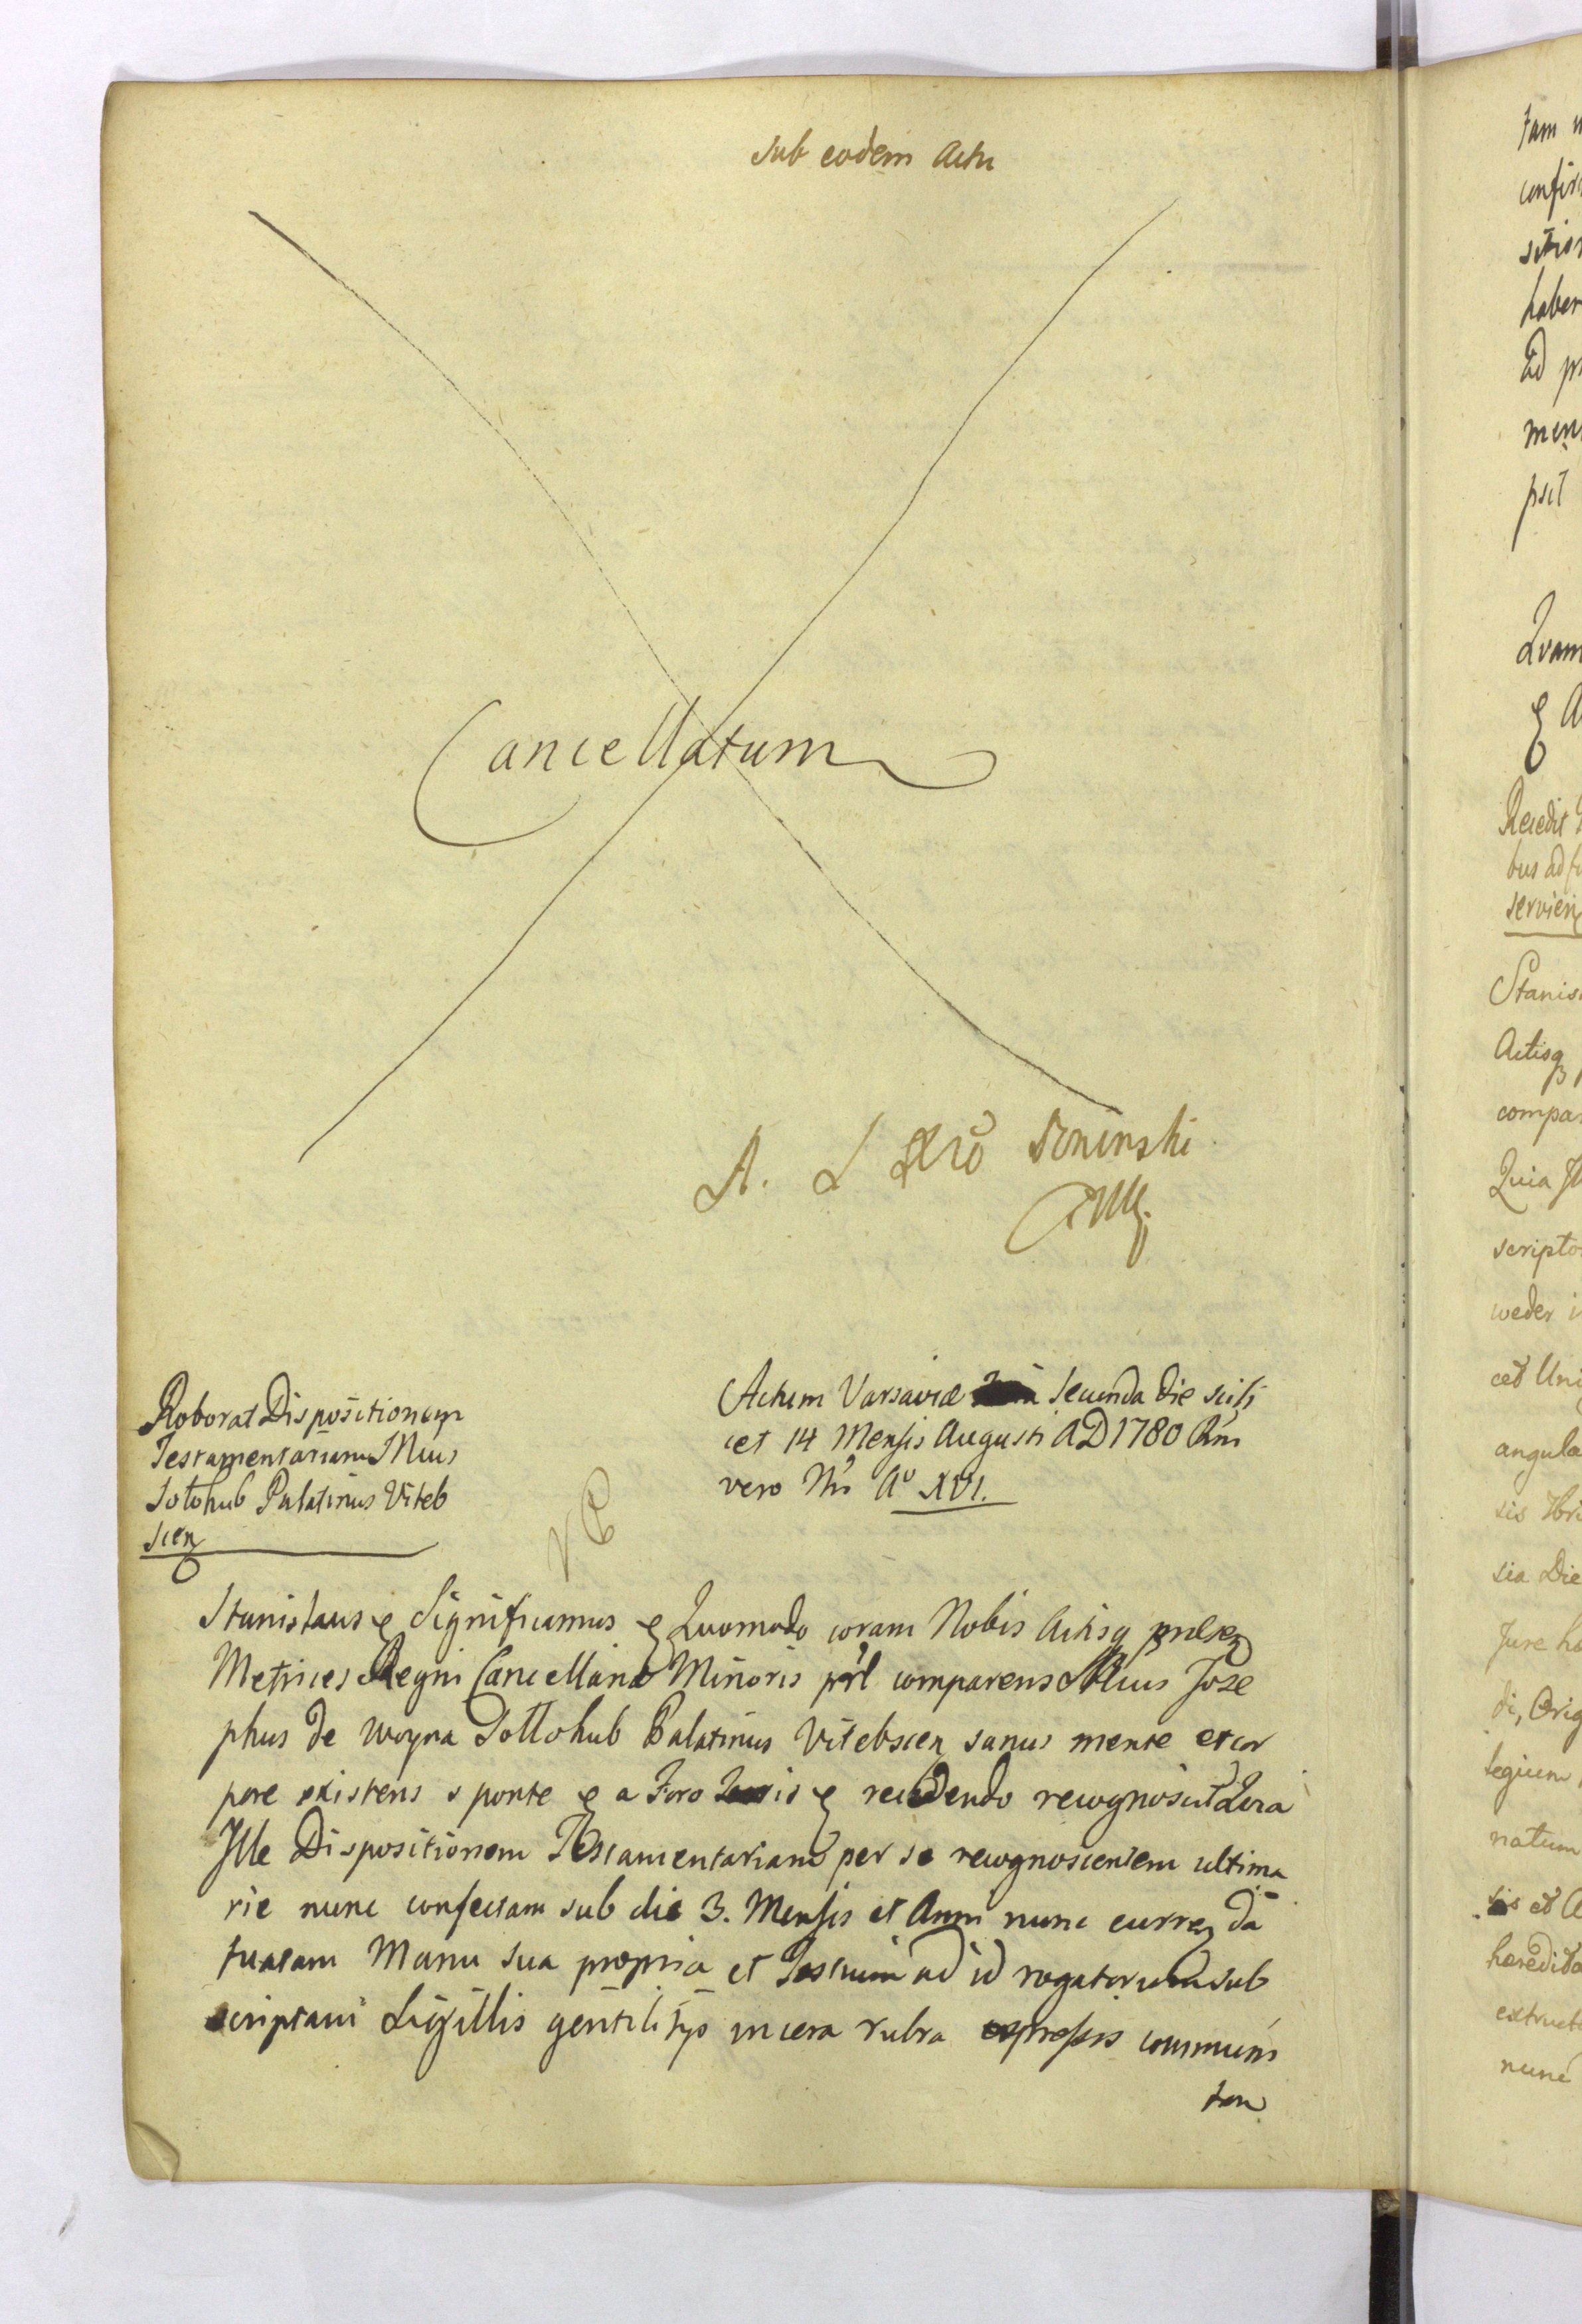 sub eodem Actu
Cancellatum
A. L
Roborat Dispositionem
Testamentariam Mius
Sołohub Palatinus Viteb
scien
Actum Varsaviæ secunda die scili
cet 14 Mensis Augusti AD 1780 Rni
vero Nri Aº XVI.
Stanislaus Significamus Quomodo coram Nobis Actisq præsen
Metrices Regni Cancellariæ Minoris prsl comparens Jose
phus de Woyna Sołłohub Palatinus Vitebscien sanus mente et cor
pore existens sponte a Foro recedendo recognoscit Quia
Ille Dispositionem Testamentariam per se recognoscentem ultima
rie nunc confectam sub die 3. Mensis et Anni nunc curren da
tuatam Manu sua propria et Testium ad id rogatorum sub
scriptam Sigillis gentilitijs in cera rubra expressis communi
tam
tam
confir
sition
haben
ad
men
psit
Quam
Recedit
bus ad
servien
Stanis
Actisq
compar
Quia Il
scripto
weder
ced Uni
angula
sis
sia Die
Jure
di, Orig
legium
natum
sis et
heredita
extruct
nunc